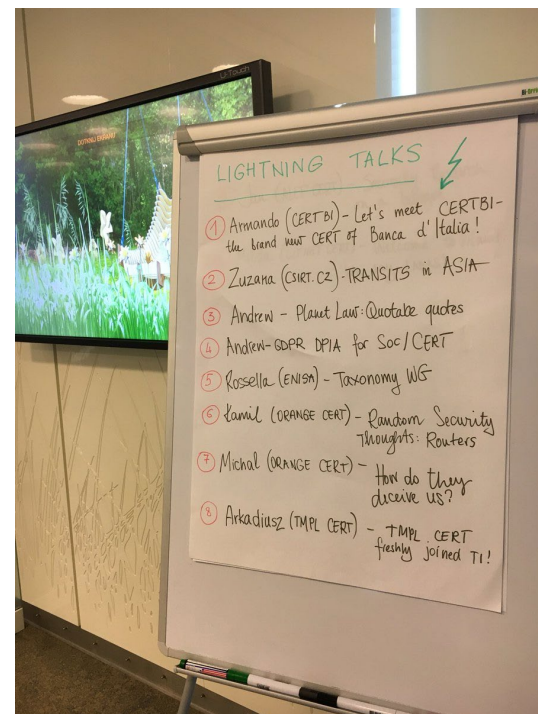 U-Touch
DOTKNIJ EKRANU
LIGHTNING TALKS
1 Armando (CERTBI) - Let's meet CERTBI-
the brand new CERT of Banca d'Italia!
2 Zuzana (CSIRT.CZ) - TRANSITS in ASIA
3 Andrew - Planet Law: Quotable quotes
4 Andrew - GDPR DPIA for SOC/CERT
5 Rossella (ENISA) - Taxonomy WG
6 Kamil (ORANGE CERT) - Random Security
Thoughts: Routers
7 Michal (ORANGE CERT) -
How do they
deceive us?
8 Arkadiusz (TMPL CERT) - TMPL CERT
freshly joined TI!